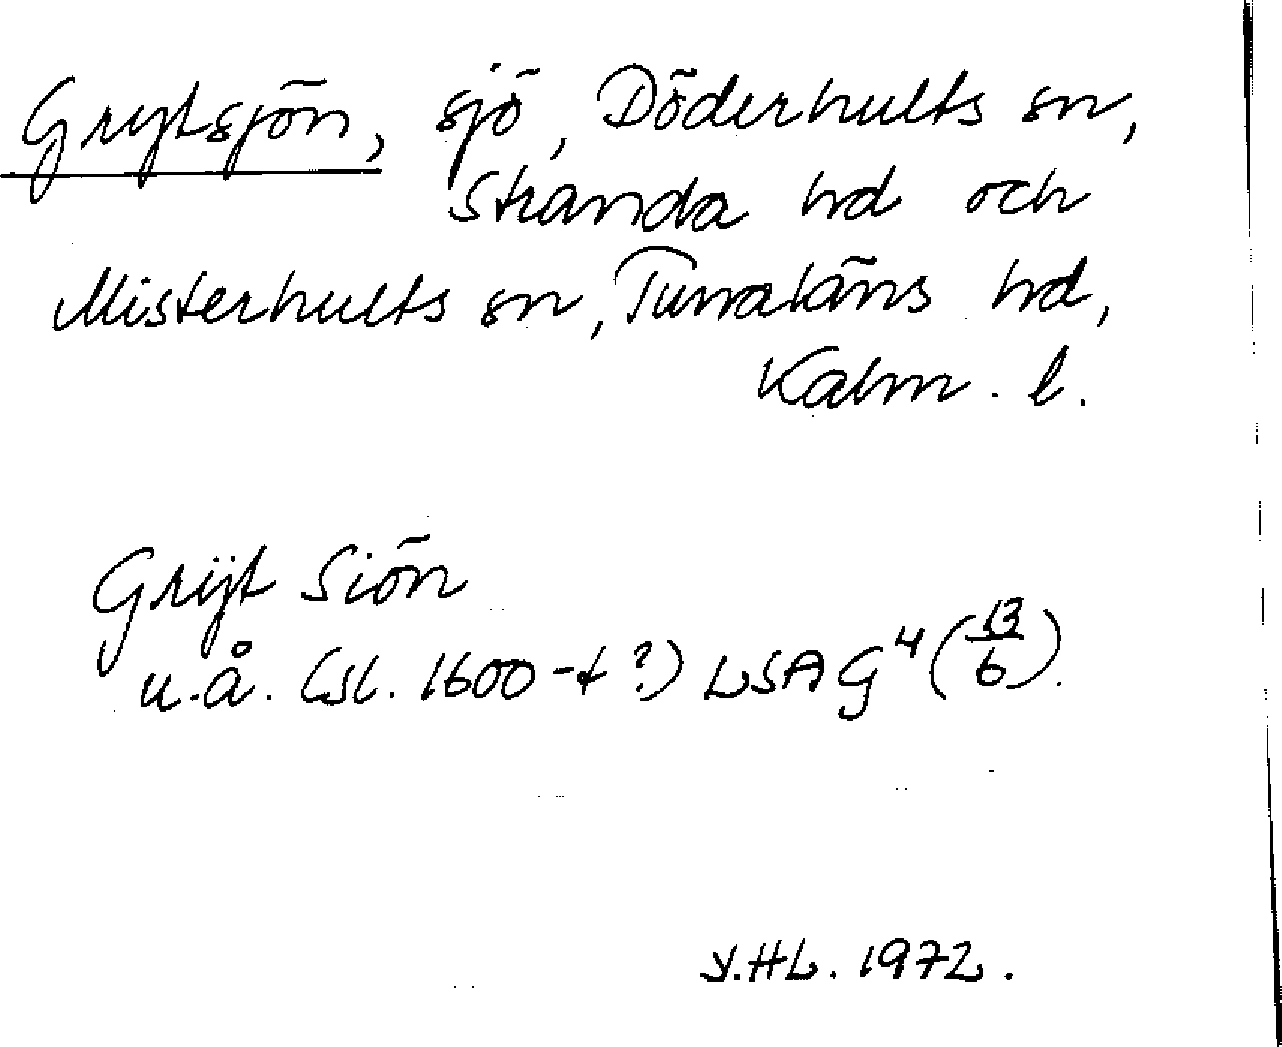 Grytsjön, sjö, Döderhults sn,
Stranda hd och
Misterhults sn, Tunaläns hd,
Kalm. l.
Grÿt Siön
u.å. (sl. 1600-t ?) LSA G4 (13/6).
Y.HL. 1972.